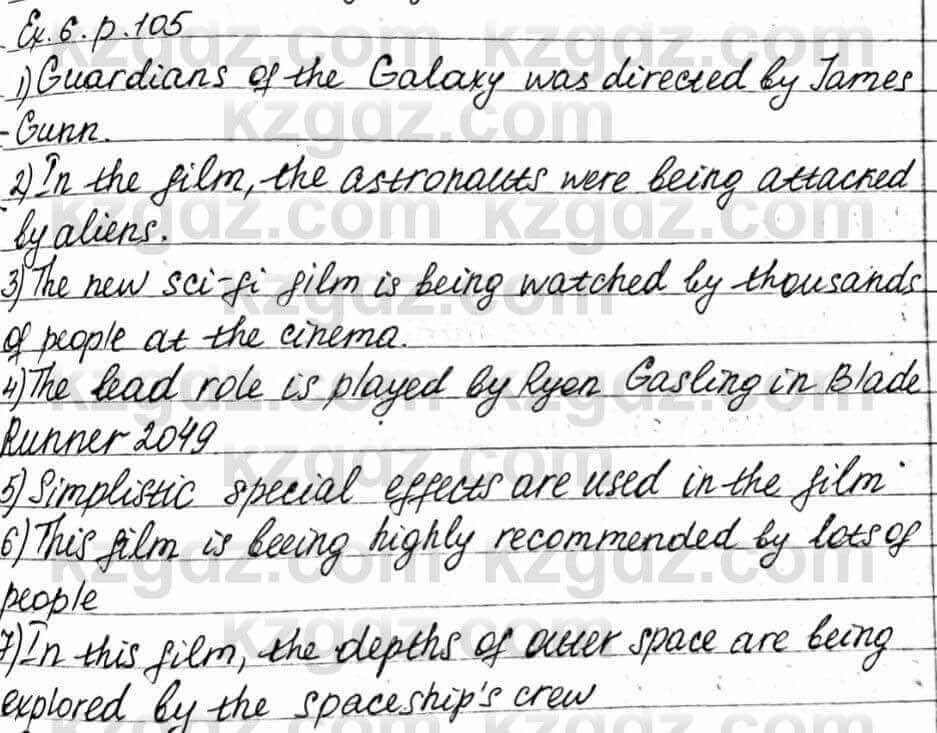 Ex. 6. p. 105
1) Guardians of the Galaxy was directed by James
Gunn.
2) In the film, the astronauts were being attacked
by aliens.
3) The new sci-fi film is being watched by thousands
of people at the cinema.
4) The lead role is played by Ryen Gasling in Blade
Runner 2049
5) Simplistic special effects are used in the film
6) This film is beeing highly recommended by lots of
people
7) In this film, the depths of outer space are being
explored by the spaceship's crew
kzgdz.com